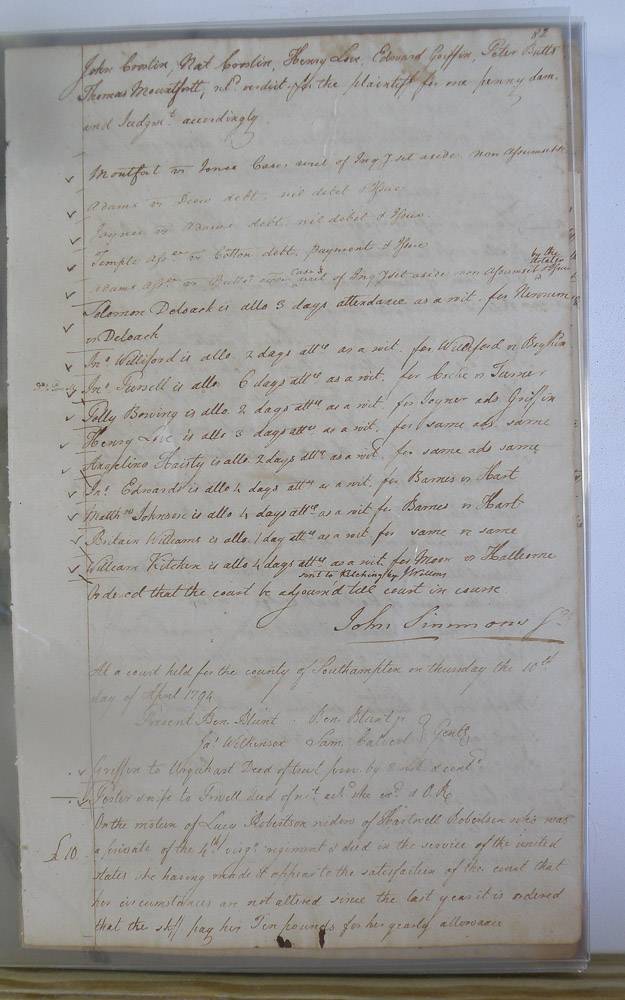 82
John Croslin, Nat Croslin, Henry Love, Edward Griffin, Peter Butts
Thomas Mountfortt, retd verdict for the plaintiff for one penny dam.
and Judgmt accordingly
Montfort vs Jones Case writ of Inqy set aside non Assumsit
Adams vs Drew debt nil debet & Issue
Joyner vs Adams debt nil debet & Issue
Temple Assee vs Cotton debt, payment & Issue
by the
Adams Assee vs Butts case writ of Inqy set aside non Assumsit & Issue
Solomon Deloach is allo 3 days attendance as a wit. for Newsum
vs Deloach
Jno Williford is allo. 2 days attce as a wit. for Williford vs Bryhin
Jno Pursell is allo 6 days attce as a wit. for vs Turner
Polly Bowing is allo. 2 days attce as a wit. for Joyner ads Griffin
Henry Love is allo 3 days attce as a wit. for same ads. same
Angelina Haisty is allo. 2 days attce as a wit. for same ads same
Jno Edwards is allo 4 days attce as a wit. for Barnes vs Hart
Matthew Johnson is allo 4 days attce as a wit for Barnes vs Hart
Britain Williams is allo. 1 day attce as a wit for same vs same
William Kitchen is allo 4 days attce as a wit for Moor vs Hallcome
sent to Kitching by J Williams
Ordered that the court be adjourn'd till court in course
John Simmons
At a court held for the county of Southampton on thursday the 10th
day of April 1794
Present Ben. Blunt Ben. Blunt jr
Jas Wilkinson Sam. Calvert } Gents
Griffin to Urquhart Deed of trust prov. by 2 wit & contd
Foster & wife to Powell deed of actd she exd & O.R.
On the motion of Lucy Robertson widow of Hartwell Robertson who was
£10 a private of the 4th virga regiment & died in the service of the united
states she having made it appear to the satisfaction of the court that
her circumstances are not altered since the last year it is ordered
that the shff pay her Ten pounds for her yearly allowance